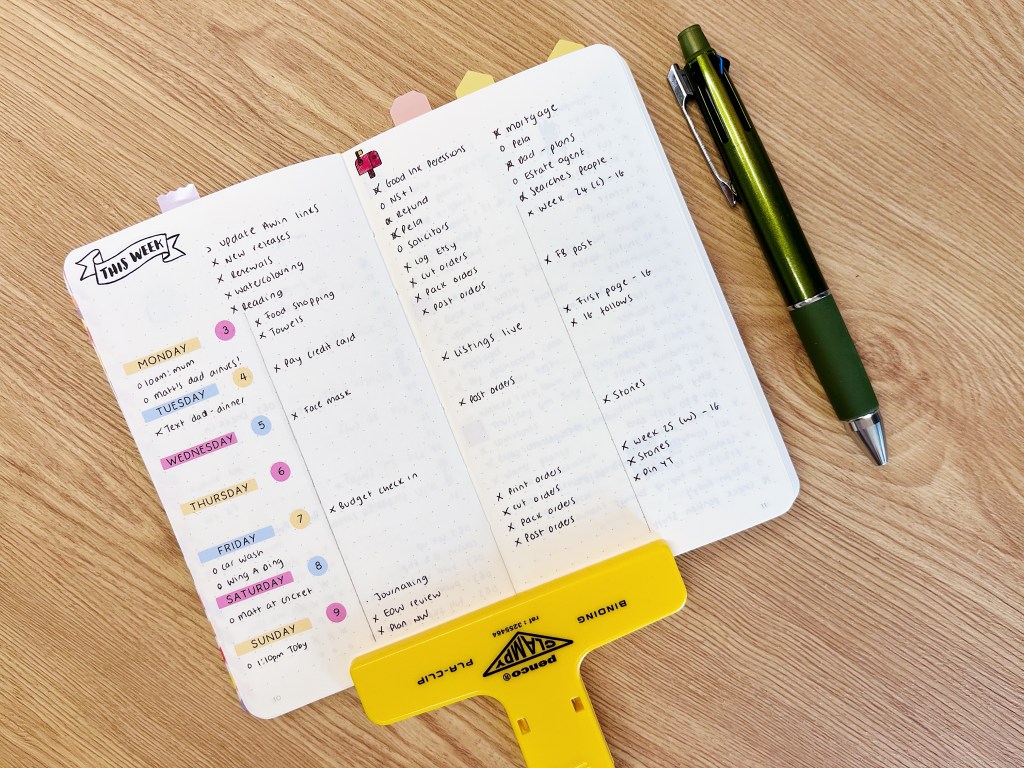 THIS WEEK
MONDAY 3
o 10am: mum
o matt's dad arrives!
TUESDAY 4
x Text dad - dinner
WEDNESDAY 5
THURSDAY 6
FRIDAY 7
o car wash
o Wing A Ding
SATURDAY 8
o matt at cricket
SUNDAY 9
o 1:10pm Toby
> update Awin links
x New releases
x Renewals
x Watercolouring
x Reading
x Food shopping
x Towels
x Pay credit card
x Face mask
x Budget check in
. Journalling
x EOW review
x Plan NW
x Good Ink
o NS+I
x Refund
x Pela
o Solicitors
x Log Etsy
x Cut orders
x Pack orders
x Post orders
x Listings live
x Post orders
x Print orders
x Cut orders
x Pack orders
x Post orders
x mortgage
o Pela
x Dad - plans
o Estate agent
x Searches people.
x Week 24 (c) - 16
x FB post
x First page - 16
x 16 follows
x Stories
x Week 25 (w) - 16
x Stories
x Pin YT
BINDING
ref : 3255464
CLAMPY
penco®
PLA-CLIP